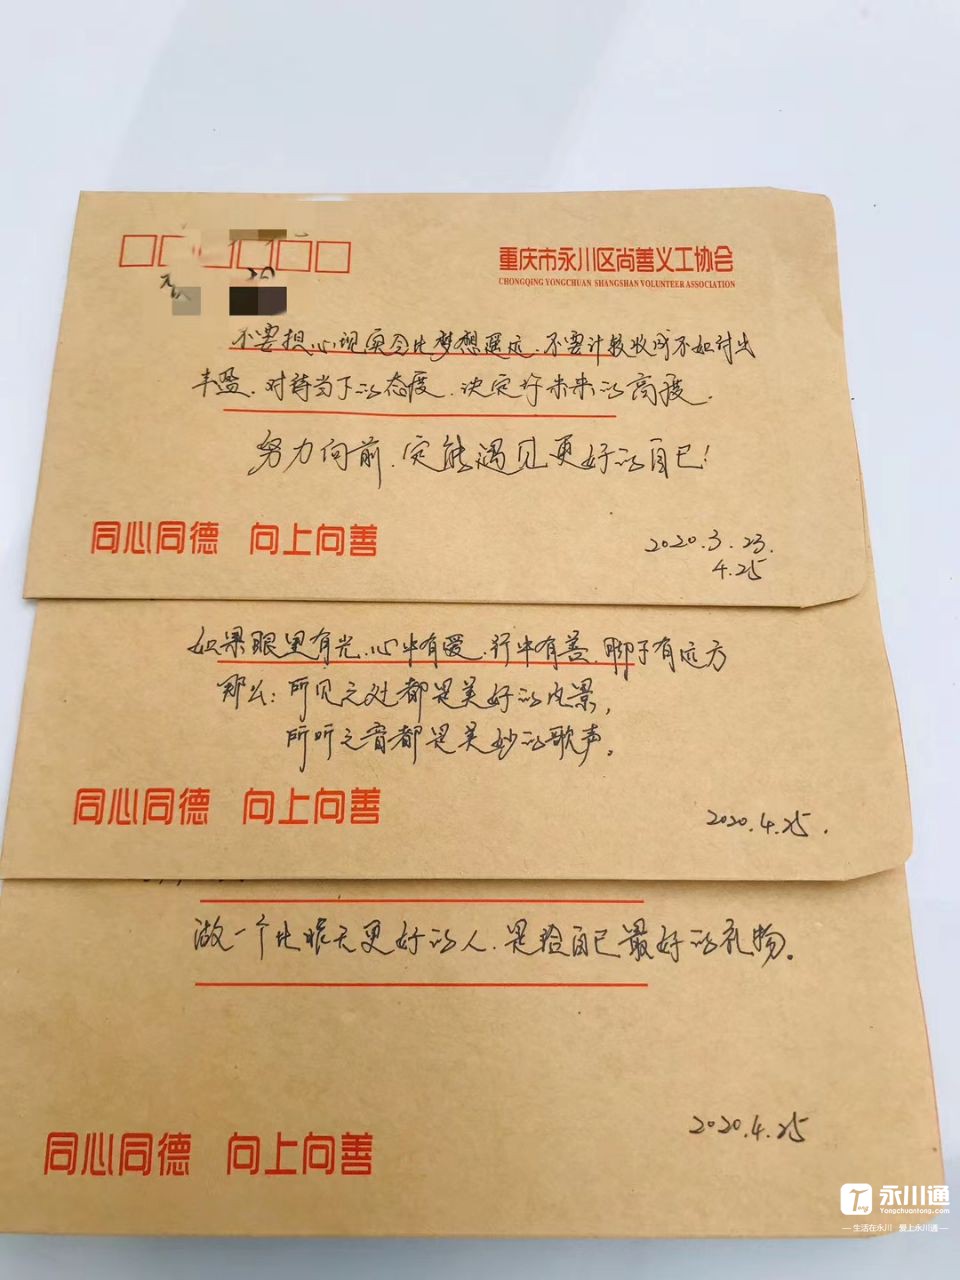 重庆市永川区尚善义工协会
CHONGQING YONGCHUAN SHANGSHAN VOLUNTEER ASSOCIATION
不要担心现实会比梦想遥远.不要计较收成不如付出
丰盈.对待当下的态度.决定你未来的高度.
努力向前.定能遇见更好的自己!
同心同德 向上向善
2020.3.23.
4.25
如果眼里有光.心中有爱.行中有善.脚于有远方
那么:所见之处都是美好的风景,
所听之音都是美妙的歌声。
同心同德 向上向善
2020.4.25.
做一个比昨天更好的人.是给自己最好的礼物。
2020.4.25
同心同德 向上向善
永川通
Yongchuantong.com
生活在永川 爱上永川通